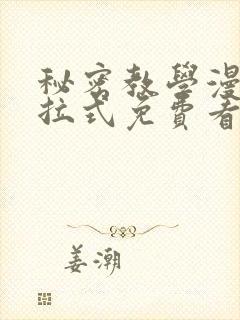 秘密教學漫
拉式免費看
姜潮